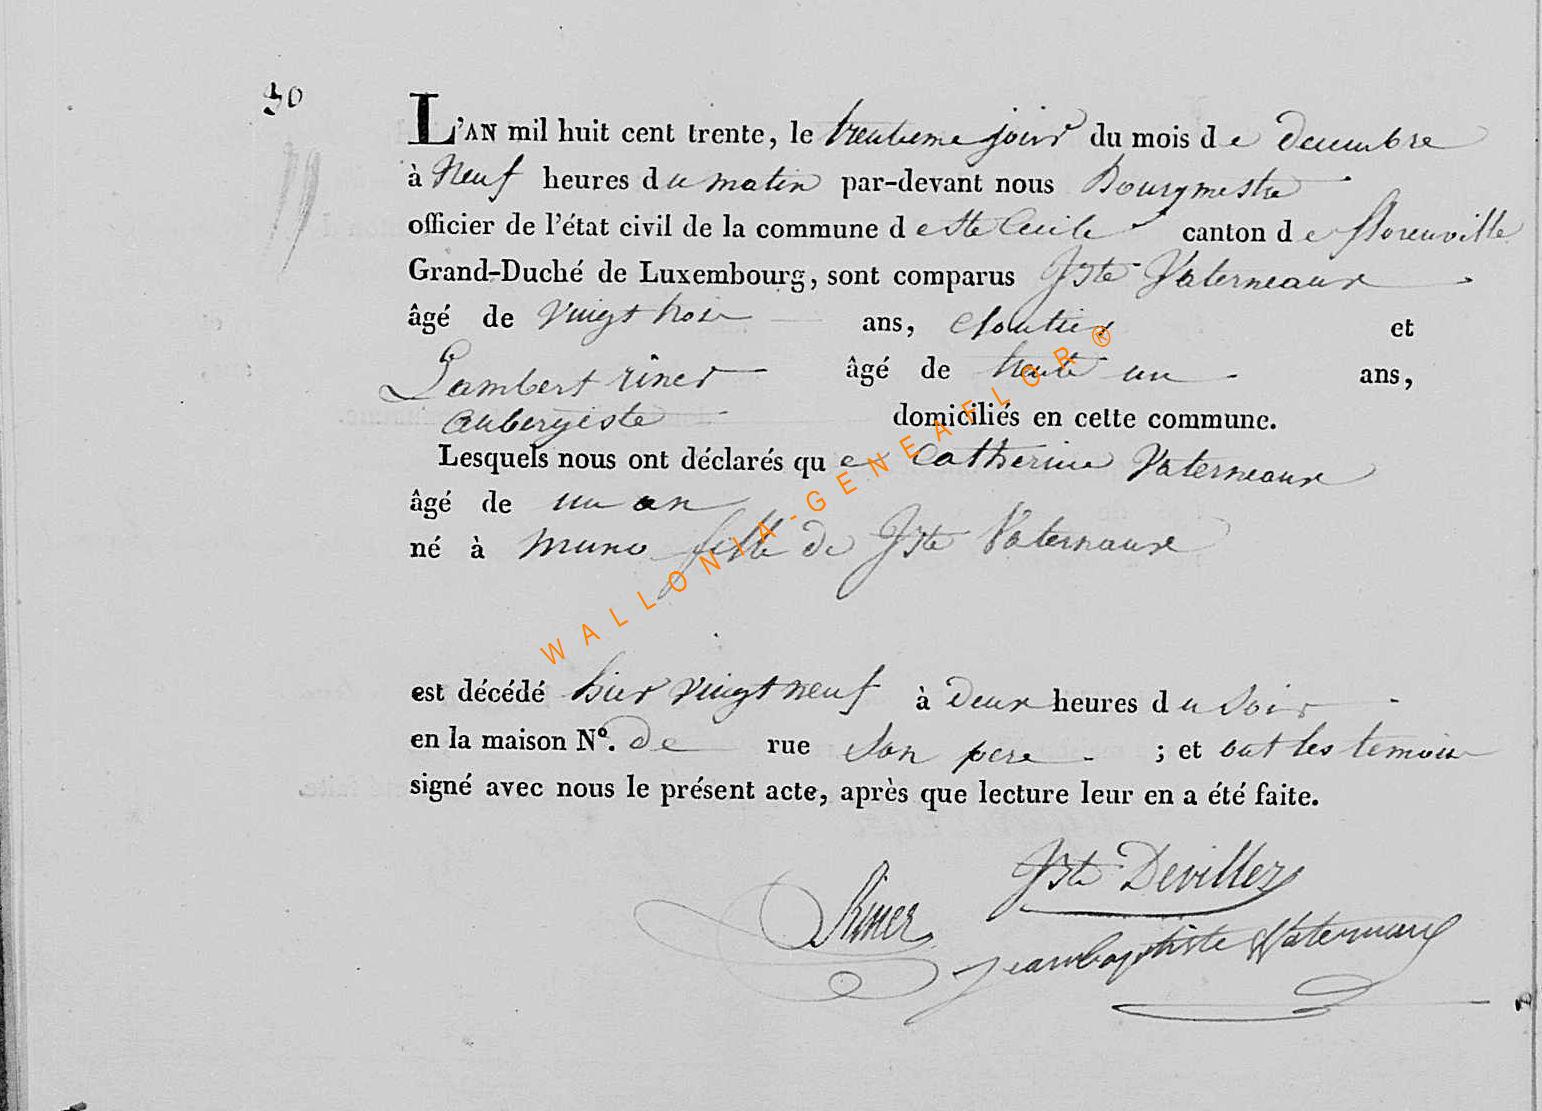 50
L'AN mil huit cent trente, le trentieme jour du mois de decembre
à Neuf heures du matin par-devant nous Bourgmestre
officier de l'état civil de la commune de Ste Cecile canton de florenville
Grand-Duché de Luxembourg, sont comparus Jbte Vaterneaux
âgé de vingt trois ans, cloutier et
Lambert riner âgé de trente un ans,
aubergiste domiciliés en cette commune.
Lesquels nous ont déclarés que Catherine Vaterneaux
âgé de un an
né à muno fille de Jbte Vaternaux
est décédé hier vingt neuf à Deux heures du Soir
en la maison Nº. de rue Son pere ; et ont les temoin
signé avec nous le présent acte, après que lecture leur en a été faite.
Jbte Devillez
Riner
Jean baptiste Vaternaux
WALLONIA-GENEAFLOR®